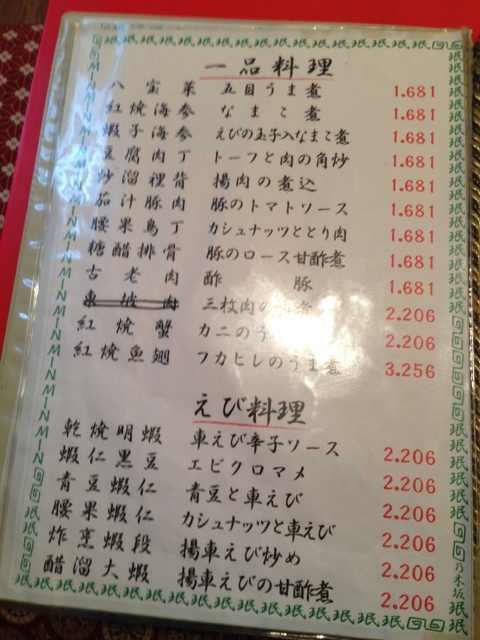 一品料理
八宝菜 五目うま煮 1.681
紅焼海参 なまこ煮 1.681
蝦子海参 えびの玉子入なまこ煮 1.681
豆腐肉丁 トーフと肉の角炒 1.681
炒溜裡背 揚肉の煮込 1.681
茄汁豚肉 豚のトマトソース 1.681
腰果鳥丁 カシュナッツととり肉 1.681
糖醋排骨 豚のロース甘酢煮 1.681
古老肉 酢豚 1.681
東坡肉 三枚肉の 煮 2.206
紅焼蟹 カニのう 2.206
紅焼魚翅 フカヒレのうま煮 3.256
えび料理
乾焼明蝦 車えび辛子ソース 2.206
蝦仁黒豆 エビクロマメ 2.206
青豆蝦仁 青豆と車えび 2.206
腰果蝦仁 カシュナッツと車えび 2.206
炸烹蝦段 揚車えび炒め 2.206
醋溜大蝦 揚車えびの甘酢煮 2.206
珉珉 MIN MIN
乃木坂